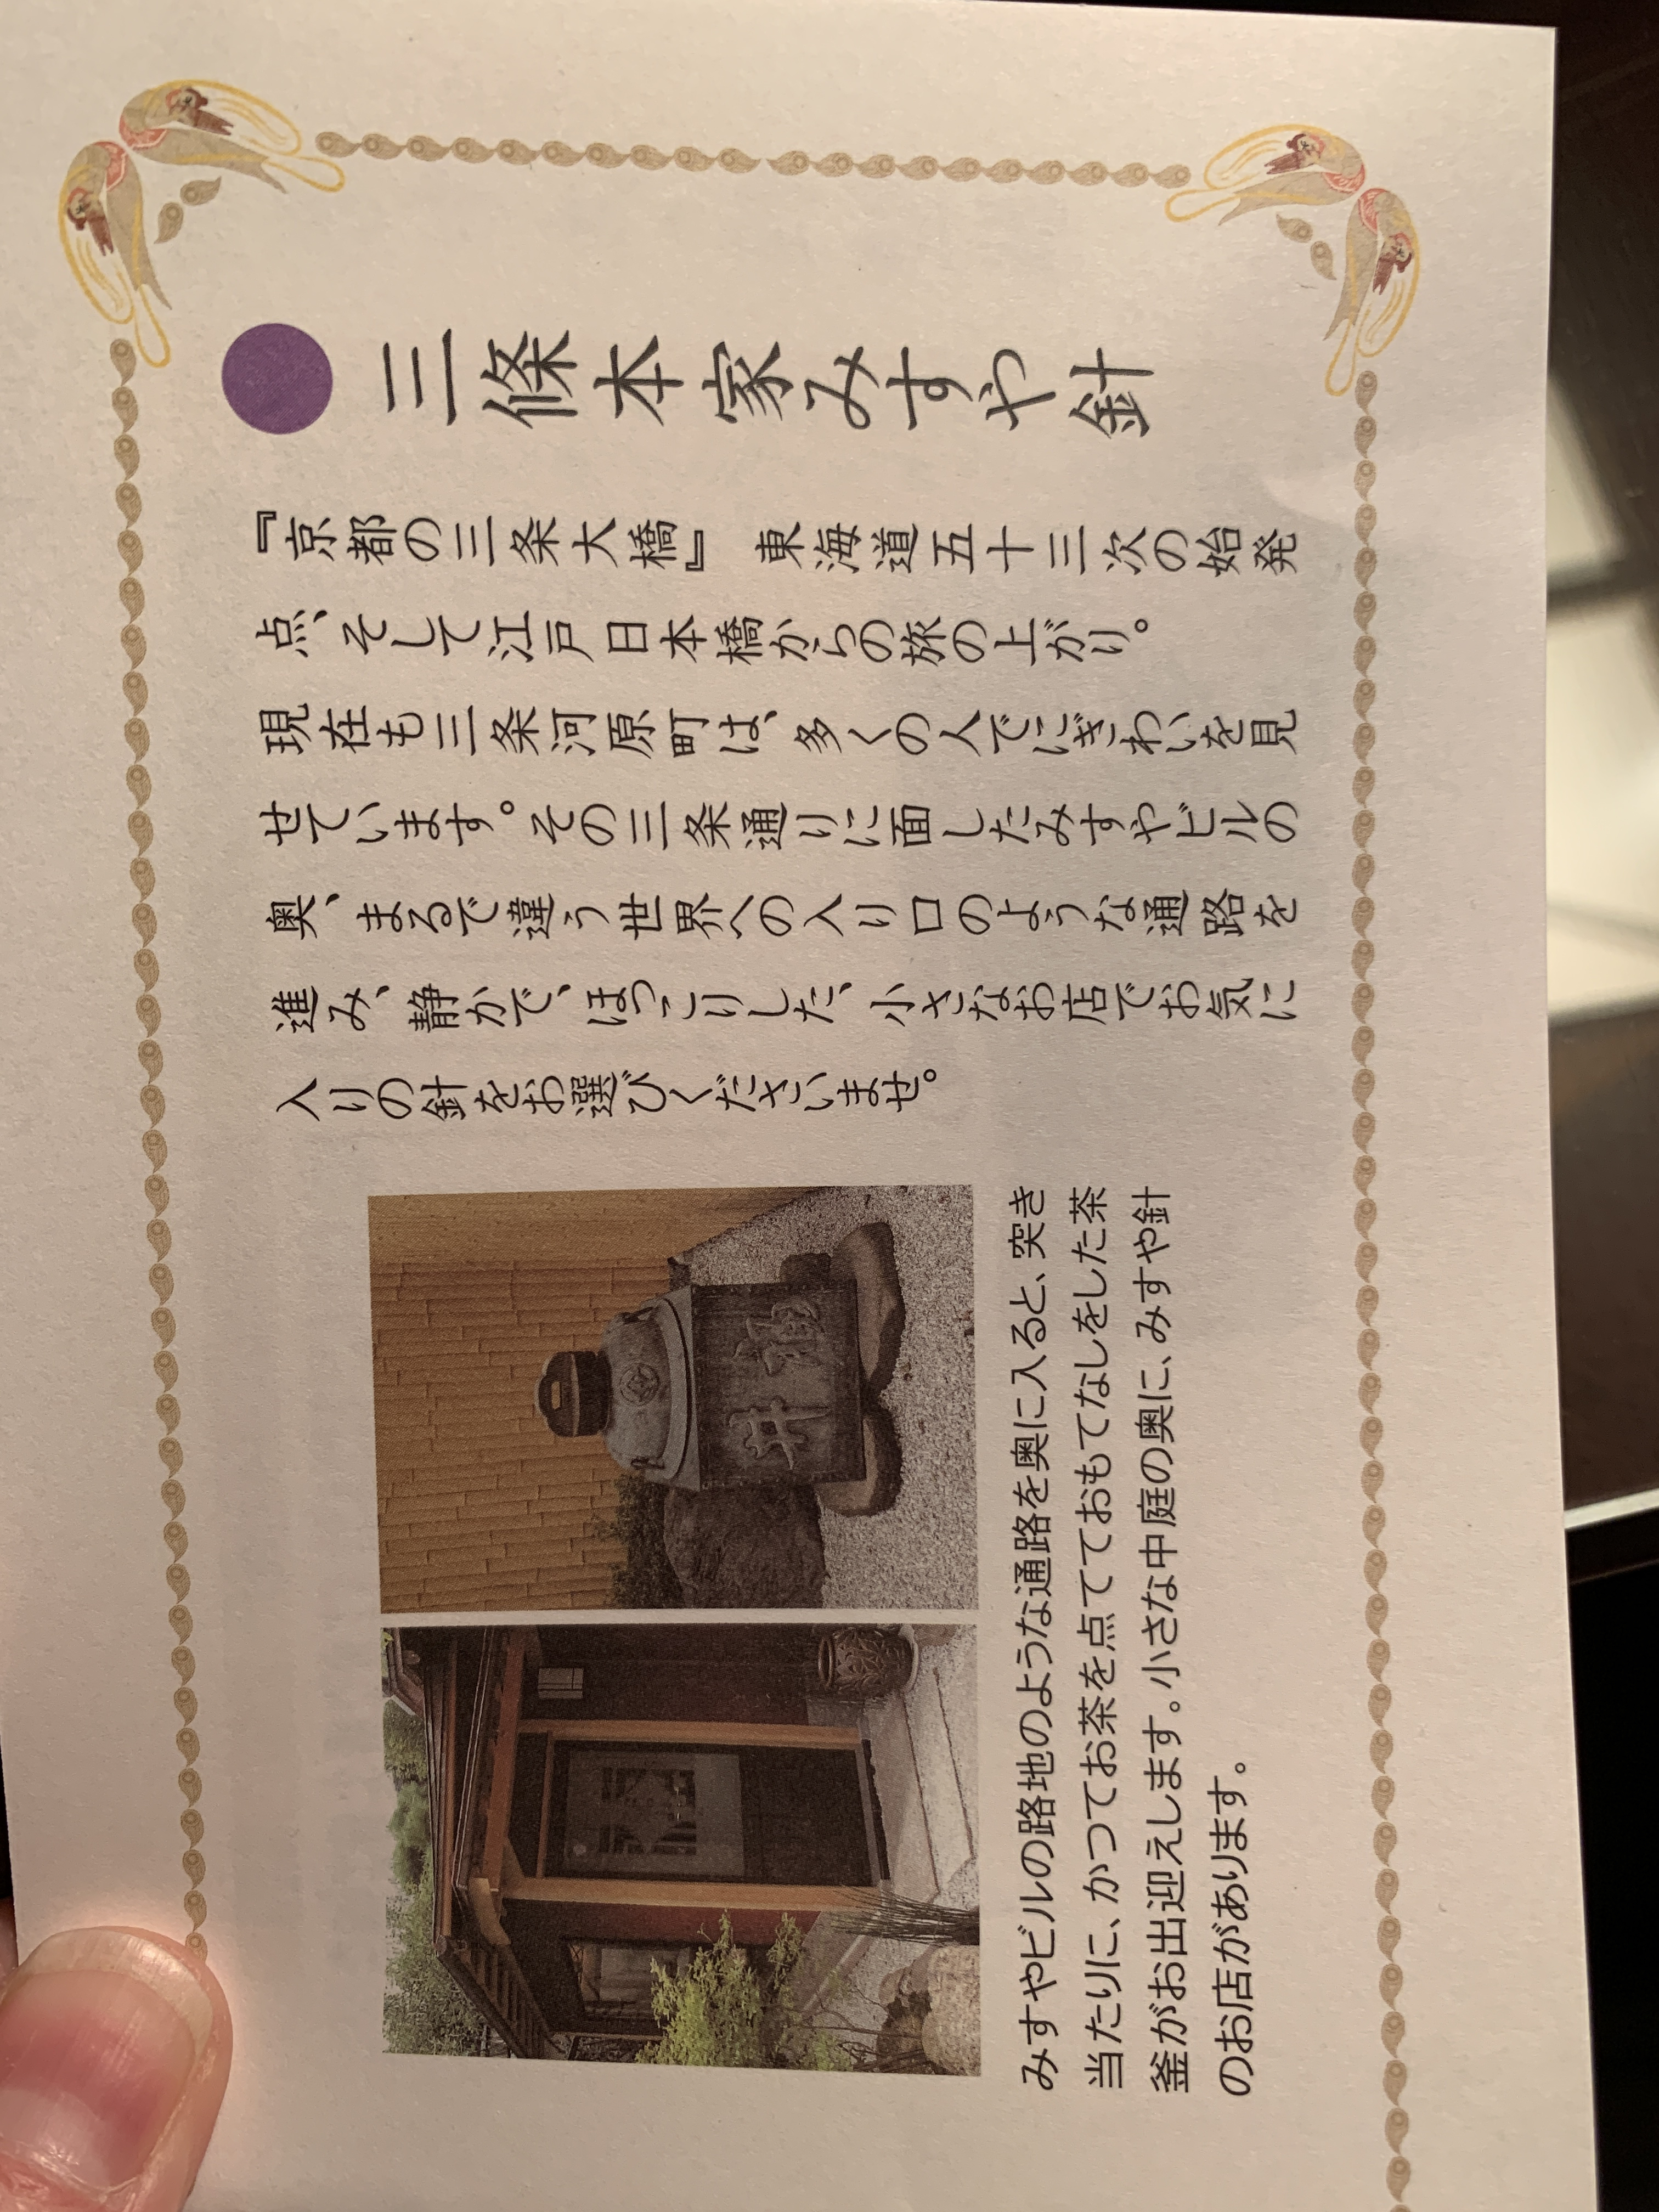 三條本家みすや針
『京都の三条大橋』 東海道五十三次の始発
点、そして江戸 日本橋からの旅の上がり。
現在も三条河原町は、多くの人でにぎわいを見
せています。その三条通りに面したみすやビルの
奥、まるで違う世界への入り口のような通路を
進み、静かで、ほっこりした、小さなお店でお気に
入りの針をお選びくださいませ。
みすやビルの路地のような通路を奥に入ると、突き
当たりに、かつてお茶を点てておもてなしをした茶
釜がお出迎えします。小さな中庭の奥に、みすや針
のお店があります。